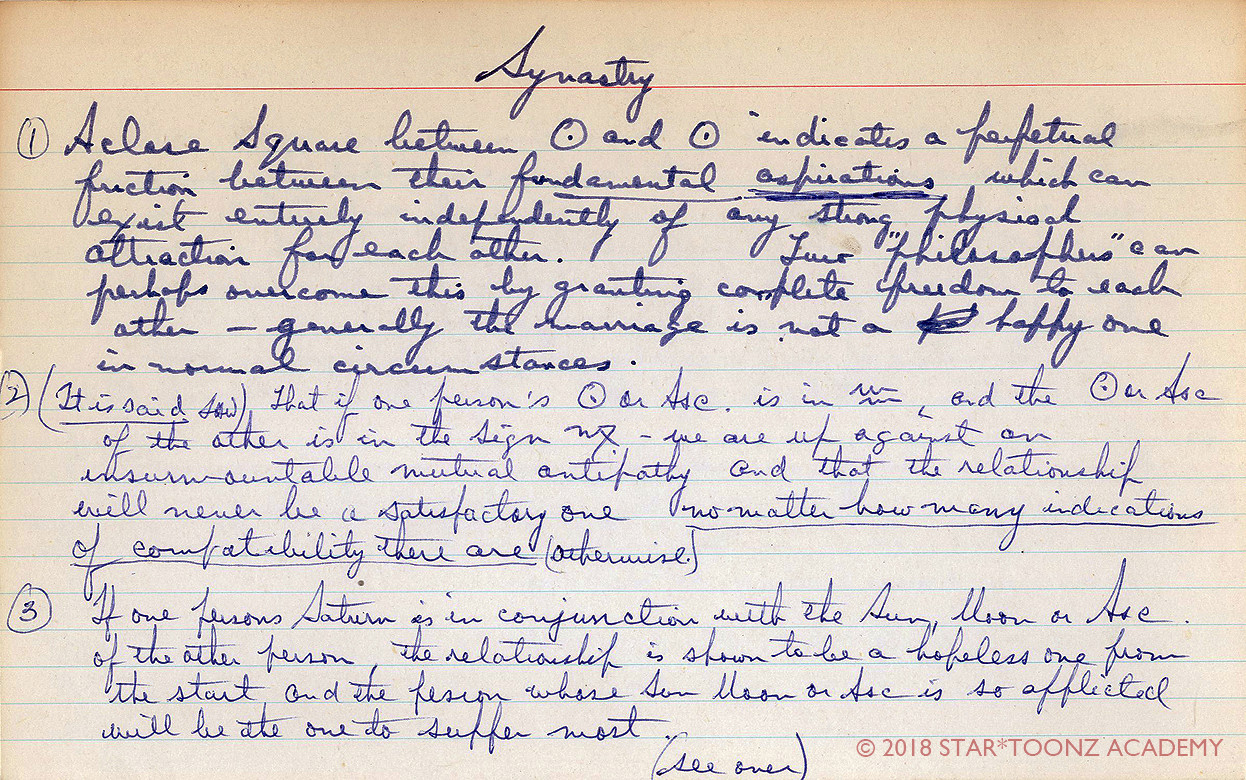 Synastry
① A close Square between ☉ and ☉ indicates a perpetual
friction between their fundamental aspirations which can
exist entirely independently of any strong physical
attraction for each other. Two "philosophers" can
perhaps overcome this by granting complete freedom to each
other — generally the marriage is not a happy one
in normal circumstances.
② (It is said) That if one person's ☉ or Asc. is in ♒, and the ☉ or Asc
of the other is in the sign ♍ - we are up against an
insurmountable mutual antipathy and that the relationship
will never be a satisfactory one no matter how many indications
of compatibility there are (otherwise.)
③ If one persons Saturn is in conjunction with the Sun, Moon or Asc.
of the other person, the relationship is shown to be a hopeless one from
the start and the person whose Sun Moon or Asc is so afflicted
will be the one to suffer most.
(see over)
© 2018 STAR*TOONZ ACADEMY